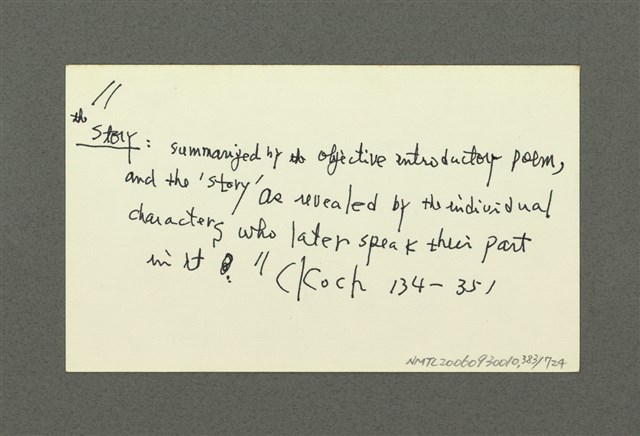 "
the
Story: summarized by the objective introductory poem,
and the 'story' as revealed by the individual
characters who later speak their part
in it." (Koch 134-35)
NMTL20060930010,383/724